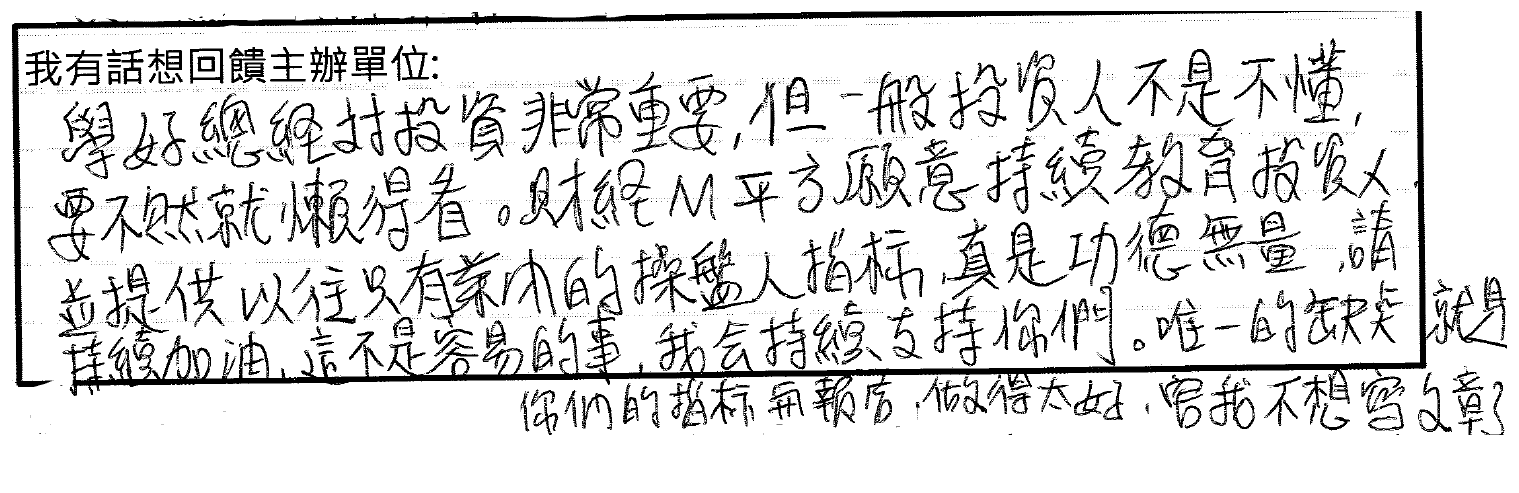 我有話想回饋主辦單位:
學好總経対投資非常重要,但一般投資人不是不懂,
要不然就懶得看。財経M平方願意持續教育投資人,
並提供以往只有業內的操盤人指标,真是功德無量,請
持續加油,這不是容易的事,我会持續支持你們。唯一的缺点就是
你們的指标和報告,做得太好,害我不想寫文章了